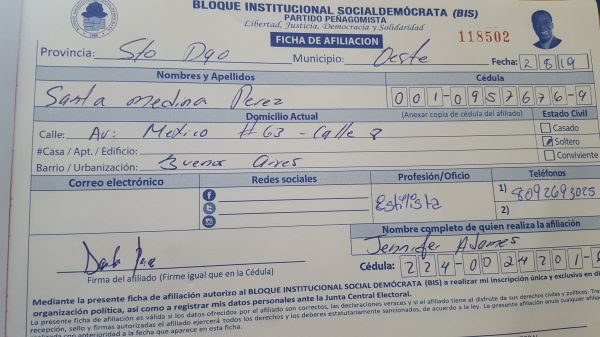 BLOQUE INSTITUCIONAL SOCIALDEMÓCRATA (BIS)
PARTIDO PEÑAGOMISTA
Libertad, Justicia, Democracia y Solidaridad
FICHA DE AFILIACION
118502
Provincia: Sto Dgo Municipio: Oeste Fecha: 2 8 19
Nombres y Apellidos Cédula
Santa Medina Perez 001-0957676-9
Domicilio Actual (Anexar copia de cédula del afiliado) Estado Civil
Calle: Av: Mexico #63 - Calle 8 Casado
#Casa / Apt. / Edificio: Soltero
Barrio / Urbanización: Buenos Aires Conviviente
Correo electrónico Redes sociales Profesión/Oficio Teléfonos
Estilista 1) 8092693025
2)
Nombre completo de quien realiza la afiliación
Jennifer Adames
Firma del afiliado (Firme igual que en la Cédula) Cédula: 224-0024201-
Mediante la presente ficha de afiliación autorizo al BLOQUE INSTITUCIONAL SOCIAL DEMÓCRATA (BIS) a realizar mi inscripción única y exclusiva en
organización política, así como a registrar mis datos personales ante la Junta Central Electoral.
La presente ficha de afiliación es válida si los datos ofrecidos por el afiliado son correctos, las declaraciones veraces y si el afiliado tiene el disfrute de sus derechos civiles y políticos.
recepción, sello y firmas autorizadas el afiliado ejercerá todos los derechos y los deberes estatutariamente sancionados, de acuerdo a la ley. La presente afiliación anula cualquier
realizada con anterioridad a la fecha que aparece en esta ficha.